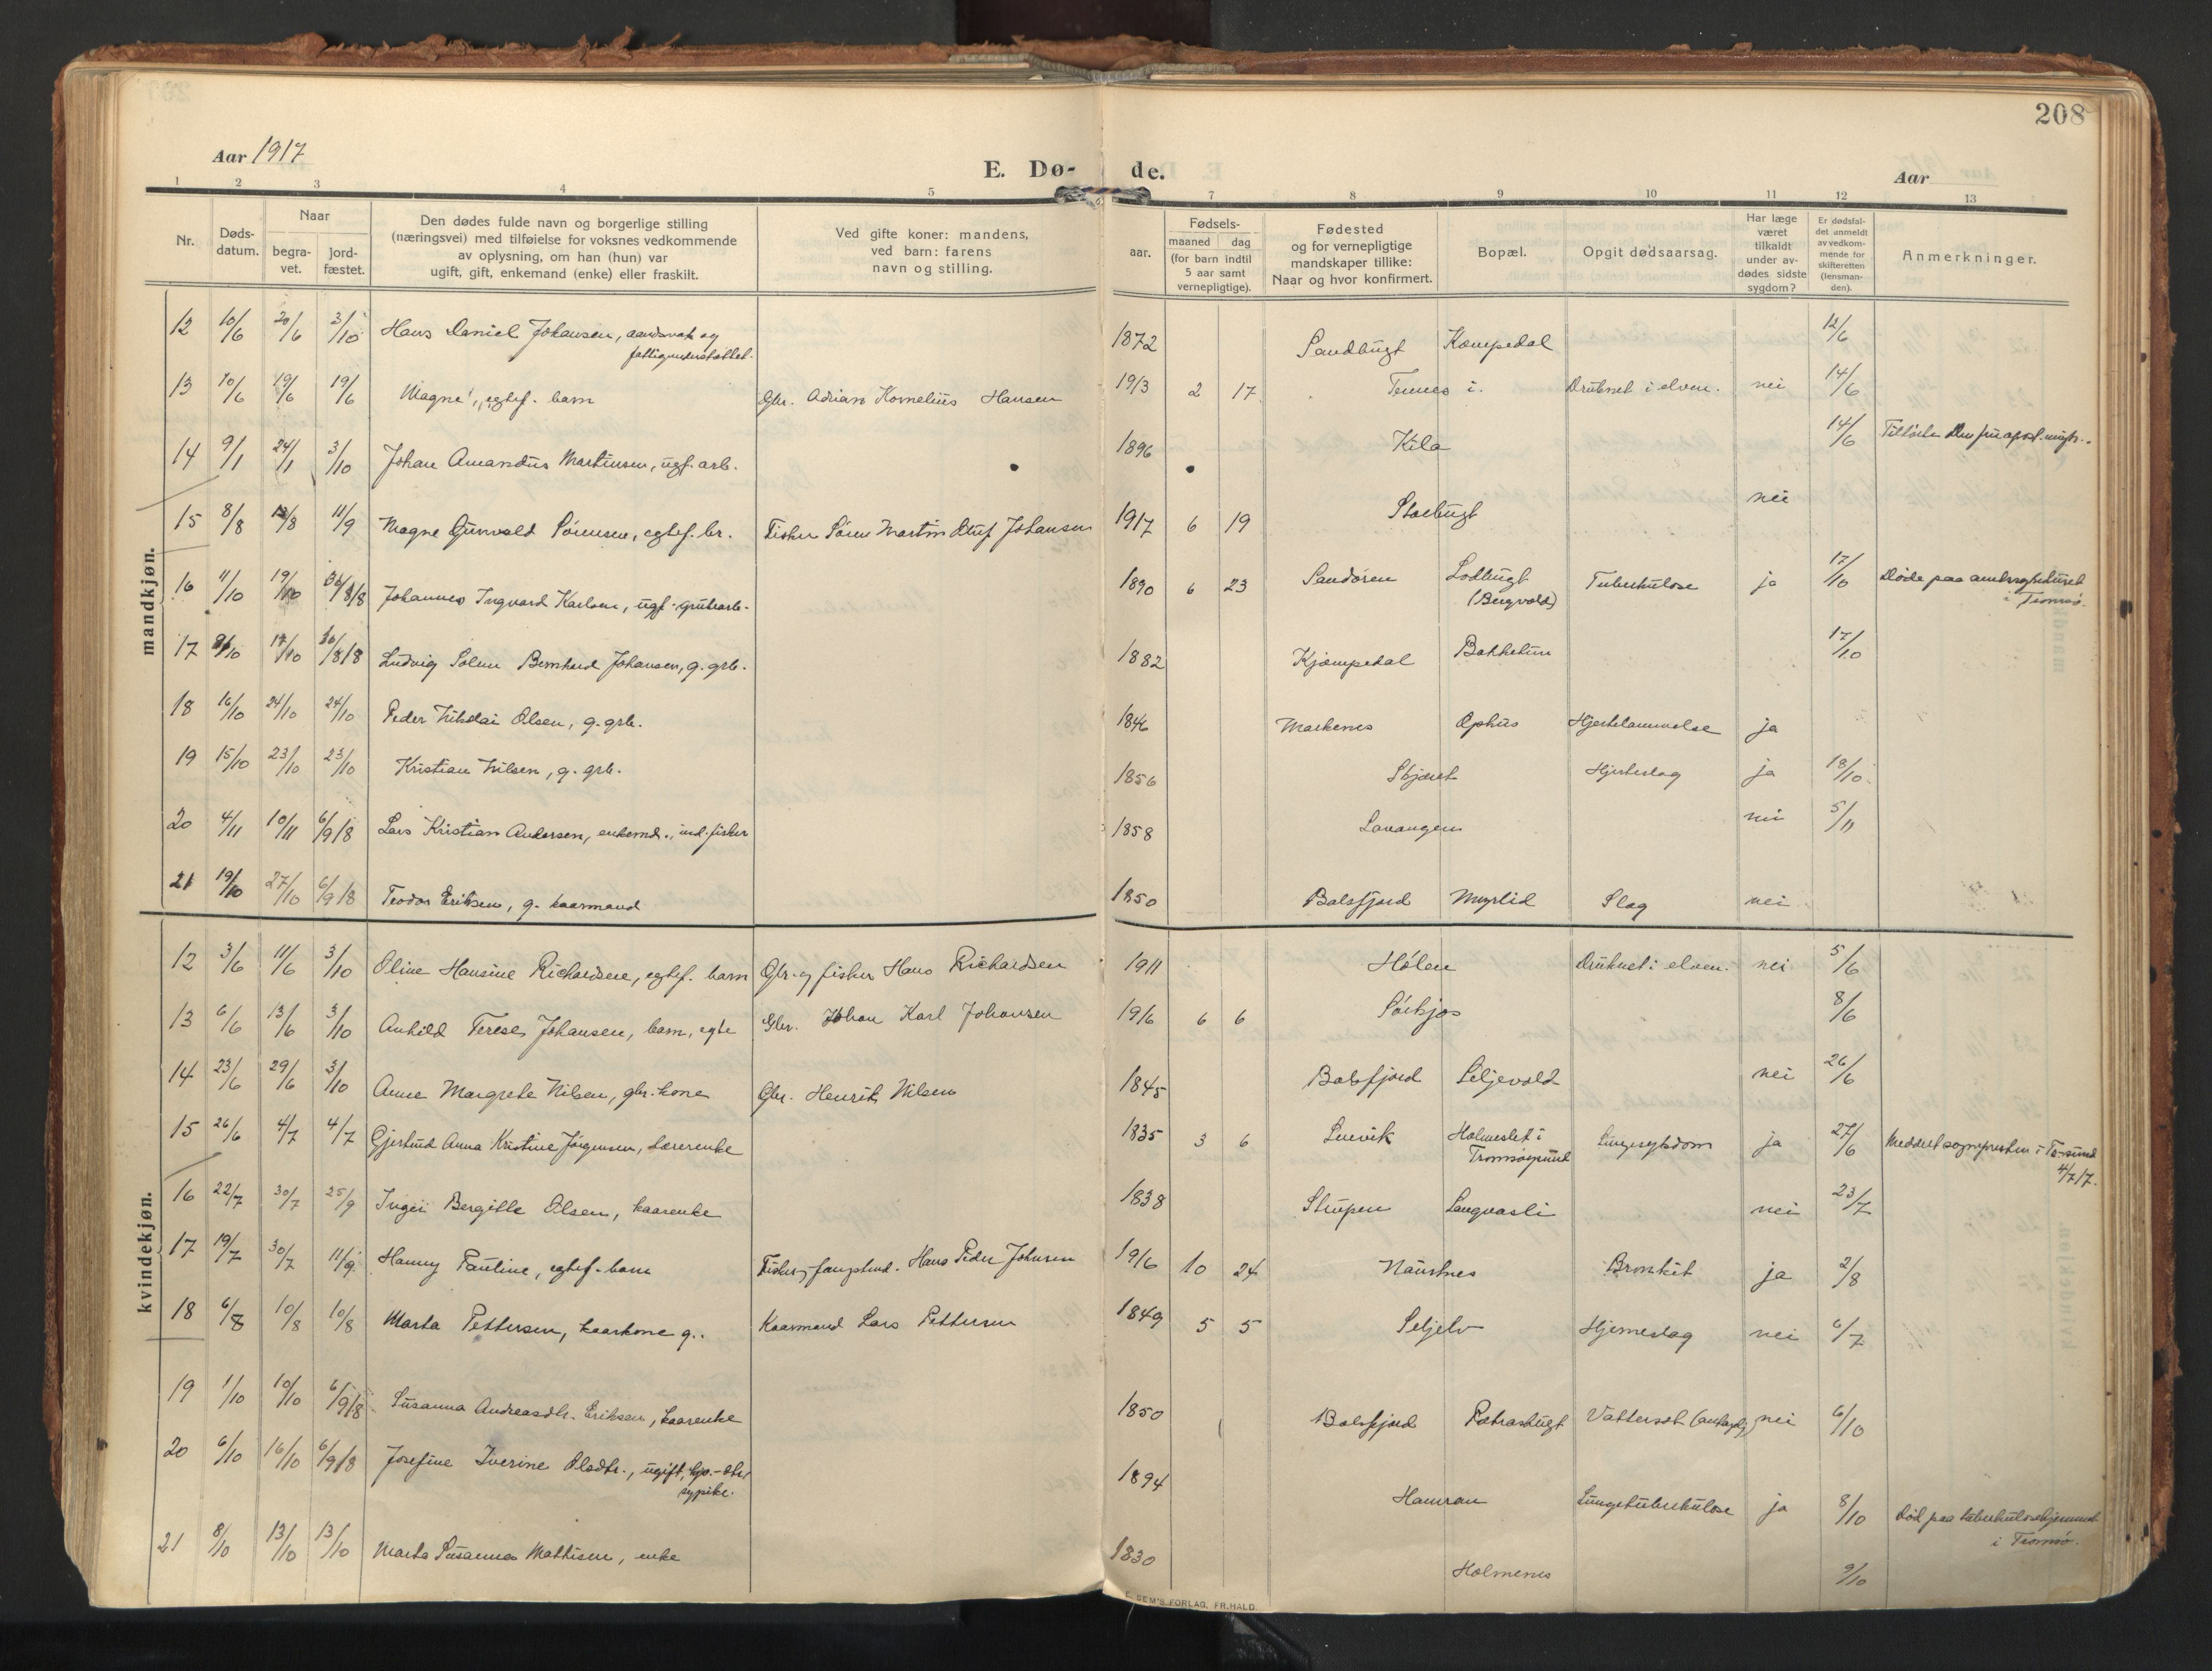 208
Aar 1917
E. Dø- de.
Aar
1 2 3 4 5 6 7 8 9 10 11 12 13
Nr.
Døds-
datum.
Naar
begra-
vet.
jord-
fæstet.
Den dødes fulde navn og borgerlige stilling
(næringsvei) med tilføielse for voksnes vedkommende
av oplysning, om han (hun) var
ugift, gift, enkemand (enke) eller fraskilt.
Ved gifte koner: mandens,
ved barn: farens
navn og stilling.
Fødsels-
aar.
maaned
dag
(for barn indtil
5 aar samt
vernepligtige).
Fødested
og for vernepligtige
mandskaper tillike:
Naar og hvor konfirmert.
Bopæl.
Opgit dødsaarsag.
Har læge
været
tilkaldt
under av-
dødes sidste
sygdom?
Er dødsfal-
det anmeldt
av vedkom-
mende for
skifteretten
(lensman-
den).
Anmerkninger.
mandkjøn.
12 10/6 20/6 3/10 Hans Daniel Johansen, aandsvak og 1872 Sandbugt Kæmpedal 12/6
fattigunderstøttet.
13 10/6 19/6 19/6 Magne, egtef. barn Gbr. Adrian Kornelius Hansen 1913 2 17 Tennes i. Druknet i elven. nei 14/6
14 9/1 24/1 3/10 Johan Amandus Martinsen, ugf. arb. 1896 Kila 14/6
15 8/8 /8 11/9 Magne Gunvald Sørensen, egtef. br. Fisker Søren Martin Oluf Johansen 1917 6 19 Storbugt nei
16 11/10 19/10 30/8 18 Johannes Ingvard Karlsen, ugf. grubearb. 1890 6 23 Sandøren Lodbugt Tuberkulose ja 17/10 Døde paa amtssykehuset
(Bergvold) i Tromsø.
17 /10 17/10 30/8 18 Ludvig Solum Bernhard Johansen, g. grb. 1882 Kjæmpedal Bakketun 17/10
18 16/10 24/10 24/10 Peder Nikolai Olsen, g. grb. 1846 Markenes Ophus Hjertelammelse ja
19 15/10 23/10 23/10 Kristian Nilsen, g. grb. 1856 Skjæret Hjerteslag ja 18/10
20 4/11 10/11 6/9 18 Lars Kristian Andersen, enkemd., ind. fisker 1858 Lavangen nei 5/11
21 19/10 27/10 6/9 18 Teodor Eriksen, g. kaarmand 1850 Balsfjord Myrlid Slag nei
kvindekjøn.
12 3/6 11/6 3/10 Oline Hansine Richardsen, egtef. barn Gbr. og fisker Hans Richardsen 1911 Hølen Druknet i elven. nei 5/6
13 6/6 13/6 3/10 Anhild Terese Johansen, barn, egte Gbr. Johan Karl Johansen 1916 6 6 Sørkjos 8/6
14 23/6 29/6 3/10 Anne Margrete Nilsen, gbr. kone Gbr. Henrik Nilsen 1845 Balsfjord Seljevold nei 26/6
15 26/6 4/7 4/7 Gjertrud Anna Kristine Jørgensen, Lærerenke 1835 3 6 Lenvik Holmeslet i Lungesykdom ja 27/6 Meddelt sognepresten i Tr-sund
Tromsøysund 4/7 17.
16 22/7 30/7 25/9 Inger Bergitte Olsen, kaarenke 1838 Strupen Langvasli nei 23/7
17 19/7 30/7 11/9 Hanny Pauline, egtef. barn Hans Peder Johnsen 1916 10 24 Naustnes Bronkit ja 2/8
18 6/8 10/8 10/8 Marta Pettersen, kaarkone g. Kaarmand Lars Pettersen 1849 5 5 Seljelv Hjerneslag nei 6/7
19 1/10 10/10 6/9 18 Susanna Andreasdtr. Eriksen, kaarenke 1850 Balsfjord Vattersot nei 6/10
20 6/10 16/10 6/9 18 Josefine Iverine Olsdtr., ugift, 1894 Hamran Lungetuberkulose ja 8/10 Død paa tuberkulosehjemmet
sypike. i Tromsø.
21 8/10 13/10 13/10 Marta Susanna Mathisen, enke 1830 Holmenes 9/10
E. SEM'S FORLAG, FR.HALD.